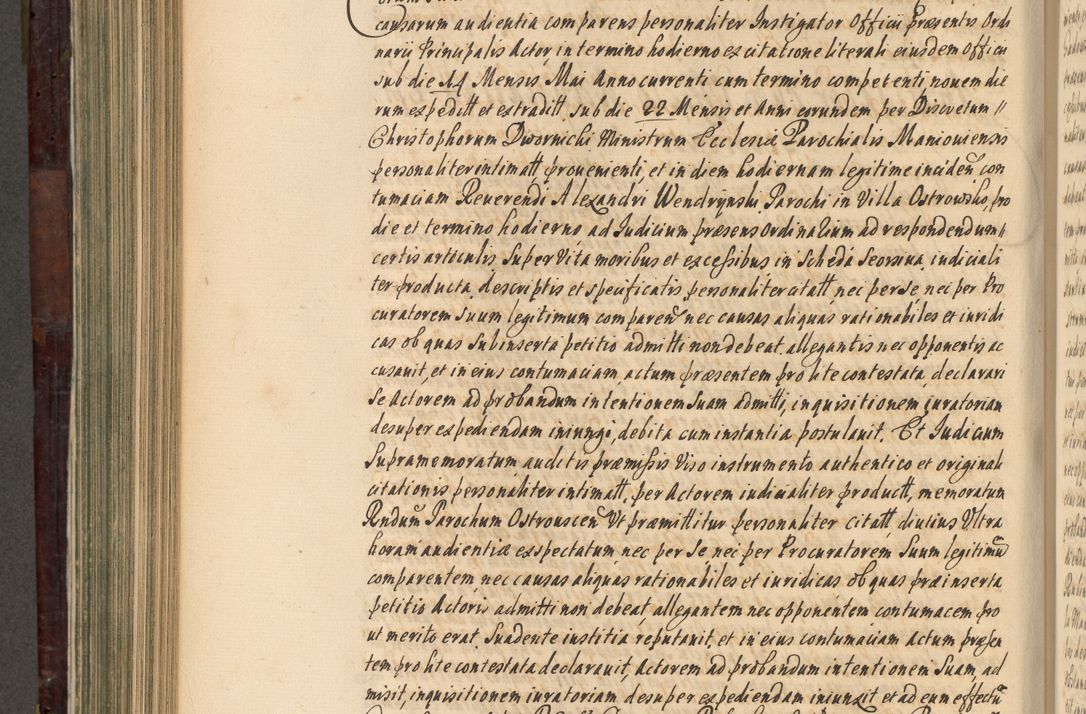 causarum audientia comparens personaliter Instigator Officii præsentis Ordi
narii Principalis Actor, in termino hodierno ex citatione literali eiusdem Officii
sub die 14 Mensis Mai Anno currenti cum termino competenti, nouem die
rum expeditt et extraditt, sub die 22 Mensis et Anni eorundem per Discretum //
Christophorum Dwornicki Ministrum Ecclesiæ Parochialis Maniouiensis
personaliter intimatt, prouenienti, et in diem hodiernam legitime inciden̄, con
tumaciam Reuerendi Alexandri Wendrynski Parochi in Villa Ostrowsko, pro
die et termino hodierno ad Iudicium præsens Ordinarium ad respondendum //
certis articulis Super Vita moribus et excessibus in Scheda Seorsiua iudiciali
ter producta, descriptis et specificatis personaliter citatt, nec per se, nec per Pro
curatorem suum legitimum comparen̄, nec causas aliquas rationabiles et iuridi
cas ob quas Subinserta petitio admitti non debeat allegantis nec opponentis ac
cusauit, et in eius contumaciam, actum præsentem pro lite contestata, declarari
Se Actorem ad probandum intentionem Suam admitti, inquisitionem iuratoriam
desuper expediendam iniungi, debita cum instantia postulauit. Et Iudicium
Supramemoratum auditis præmissis Viso instrumento authentico et originali
citationis personaliter intimatt, per Actorem iudicialiter productt, memoratum
Rndum̄ Parochum Ostrouscen̄ Vt præmittitur personaliter citatt diutius Vltra
horam audientiæ exspectatum, nec per Se nec per Procuratorem Suum legitimū
comparentem, nec causas aliquas rationabiles et iuridicas ob quas præinserta
petitio Actoris admitti non debeat, allegantem nec opponentem contumacem pro
ut merito erat. Suadente iustitia reputauit, et in eius contumaciam Actum præsen
tem pro lite contestata declarauit, Actorem ad probandum intentionem Suam, ad
misit, inquisitionem iuratoriam desuper expediendam iniunxit et ad eum effectū